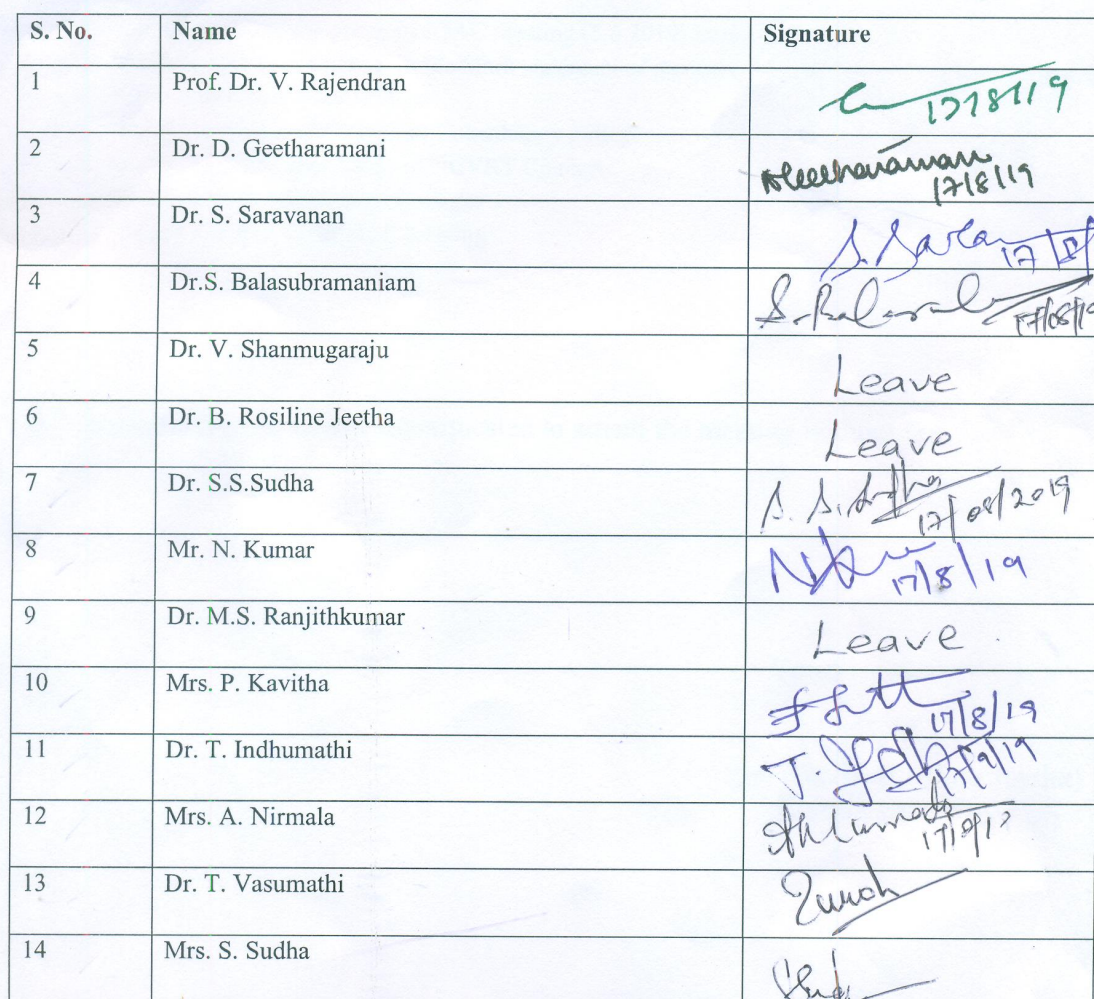 S. No. Name Signature
1 Prof. Dr. V. Rajendran 17/8/19
2 Dr. D. Geetharamani DGeetharamani 17/8/19
3 Dr. S. Saravanan S. Sara 17/8/
4 Dr.S. Balasubramaniam 17/08/19
5 Dr. V. Shanmugaraju Leave
6 Dr. B. Rosiline Jeetha Leave
7 Dr. S.S.Sudha S. S. Sudha 17/08/2019
8 Mr. N. Kumar 17/8/19
9 Dr. M.S. Ranjithkumar Leave
10 Mrs. P. Kavitha 17/8/19
11 Dr. T. Indhumathi
12 Mrs. A. Nirmala
13 Dr. T. Vasumathi
14 Mrs. S. Sudha